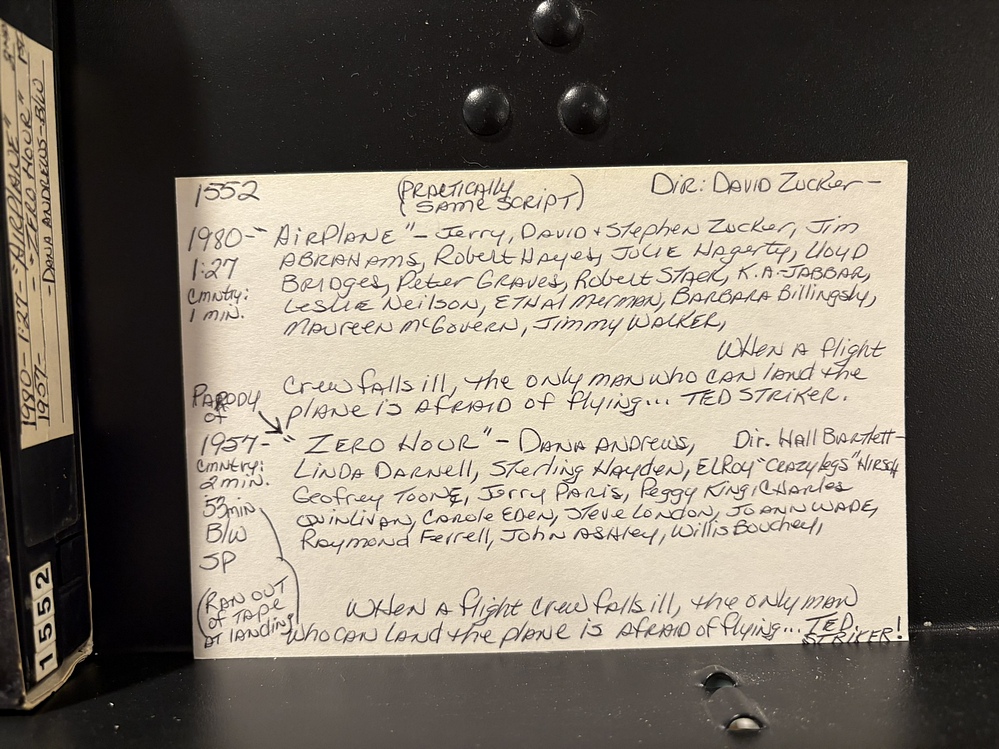 1980-1:27-"AIRPLANE"
1957- -"ZERO HOUR"
-DANA ANDREWS-B/W
1552
1552 (PRACTICALLY SAME SCRIPT) Dir: DAVID ZUCKER-
1980-"AIRPLANE"-Jerry, DAVID + Stephen Zucker, Jim
1:27 ABRAHAMS, Robert Hayes, JULIE HAGERTY, LLOYD
Cmntry: BRIDGES, Peter GRAVES, Robert STACK, K.A-JABBAR,
1 min. LESLIE NEILSON, ETHAL MERMAN, BARBARA Billingsly,
MAUREEN McGOVERN, Jimmy WALKER,
WHEN A flight
Crew falls ill, the only man who CAN LAND the
plane is AFRAID of flying... TED STRIKER.
PARODY
of
1957-"ZERO HOUR"-DANA ANDREWS, Dir. Hall Bartlett-
Cmntry: LINDA DARNELL, Sterling Hayden, ELROY "CRAZY legs" HIRSCH
2 min. Geofrey TOONE, Jerry PARIS, Peggy King, CHARLES
53 min QUINLIVAN, CAROLE EDEN, STEVE LONDON, JOANN WADE,
B/W Raymond Ferrell, JOHN ASHLEY, WILLIS BOUCHEY,
SP
(RAN OUT
of TAPE
AT LANDING)
WHEN A flight Crew falls ill, the only man
who CAN LAND the plane is AFRAID of flying... TED
STRIKER!